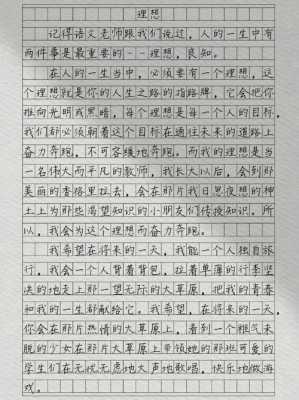 理想
记得语文老师跟我们说过，人的一生中有
两件事是最重要的--理想，良知。
在人的一生当中，必须要有一个理想，这
个理想就是你的人生之路的指路牌，它会把你
推向光明或黑暗，每个理想是每一个人的目标，
我们都必须朝着这个目标在通往未来的道路上
奋力奔跑，不可容缓地奔跑。而我的理想是当
一名伟大而平凡的教师，我长大以后，会到那
美丽的香格里拉去，会在那片我日思夜想的神
土上为那些渴望知识的小朋友们传授知识，所
以，我会为这个理想而奋力奔跑。
我希望在将来的一天，我能一个人独自旅
行，我会一个人背着背包，拉着单薄的行李坚
决的地支上那一望无际的大草原，把我的青春
和我的一生都献给它。我希望，在将来的一天，
你会在那片热情的大草原上，看到一个稚气未
脱的少女在那片大草原上带领她的那班可爱的
学生们在无忧无虑地大声地歌唱，快乐地做游
戏。